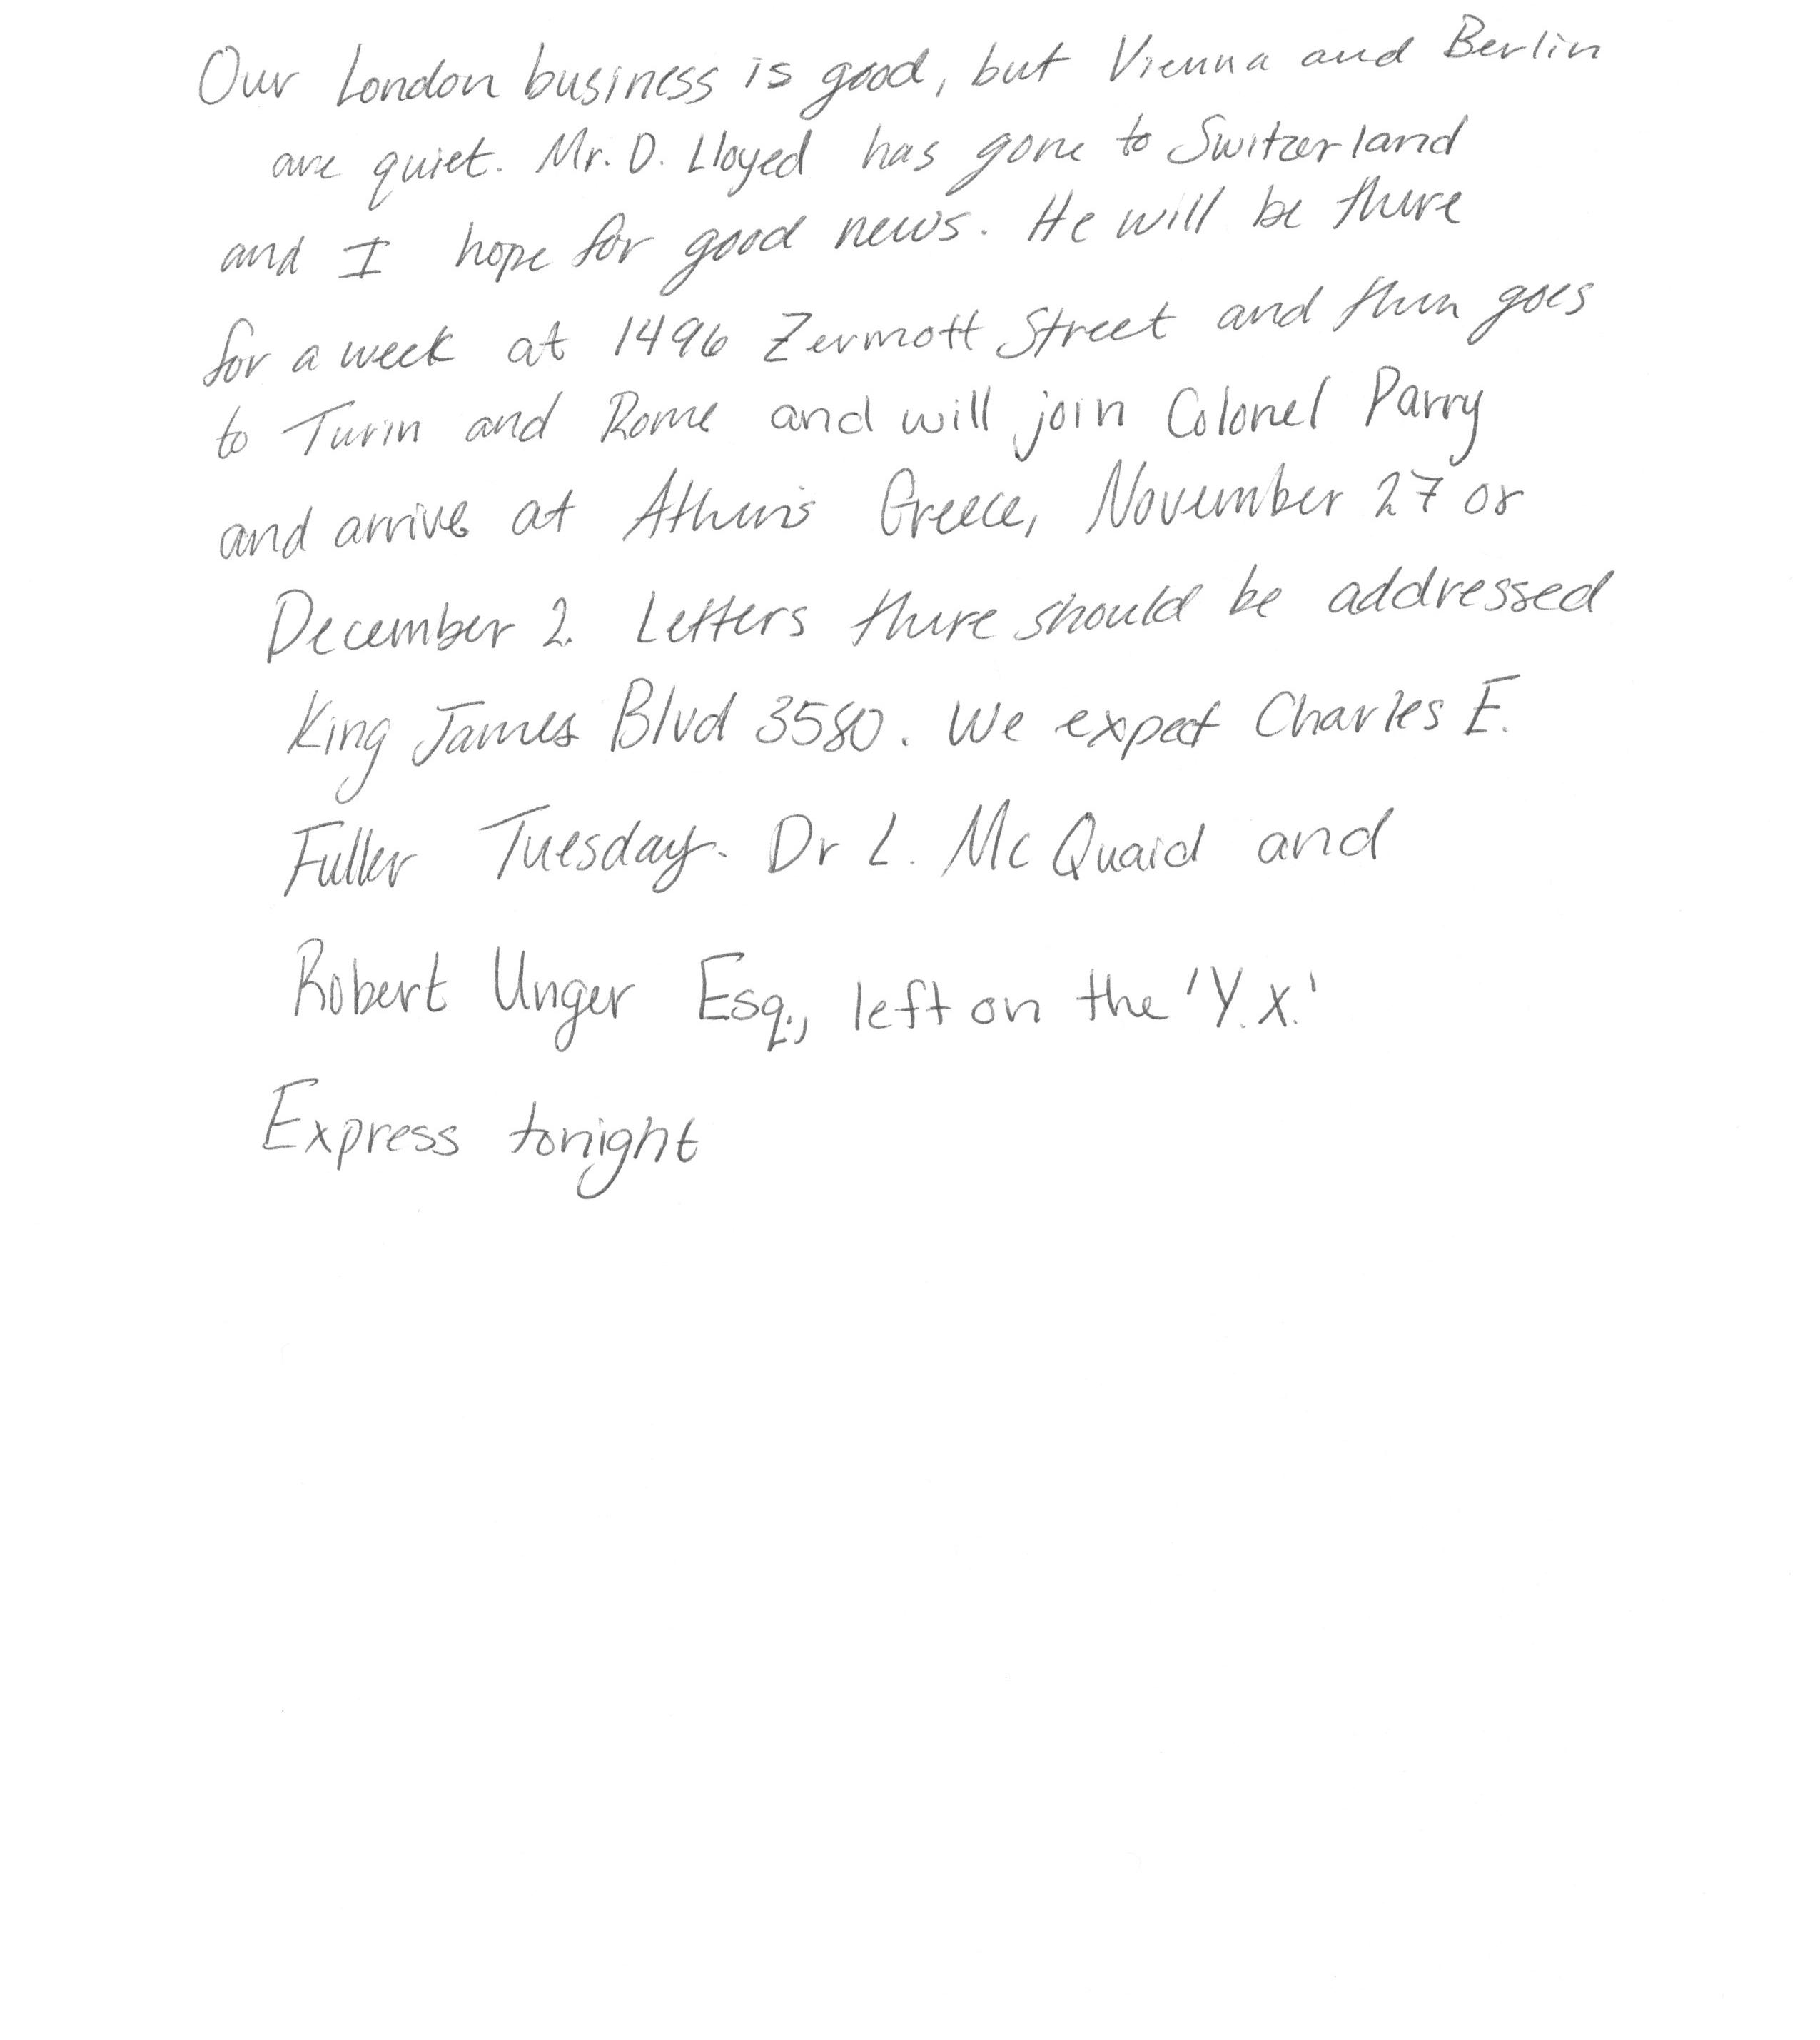 Our London business is good, but Vienna and Berlin
are quiet. Mr. D. Lloyed has gone to Switzerland
and I hope for good news. He will be there
for a week at 1496 Zermott Street and then goes
to Turin and Rome and will join Colonel Parry
and arrive at Athens Greece, November 27 or
December 2. Letters there should be addressed
King James Blvd 3580. We expect Charles E.
Fuller Tuesday. Dr L. McQuaid and
Robert Unger Esq., left on the 'Y.X.'
Express tonight